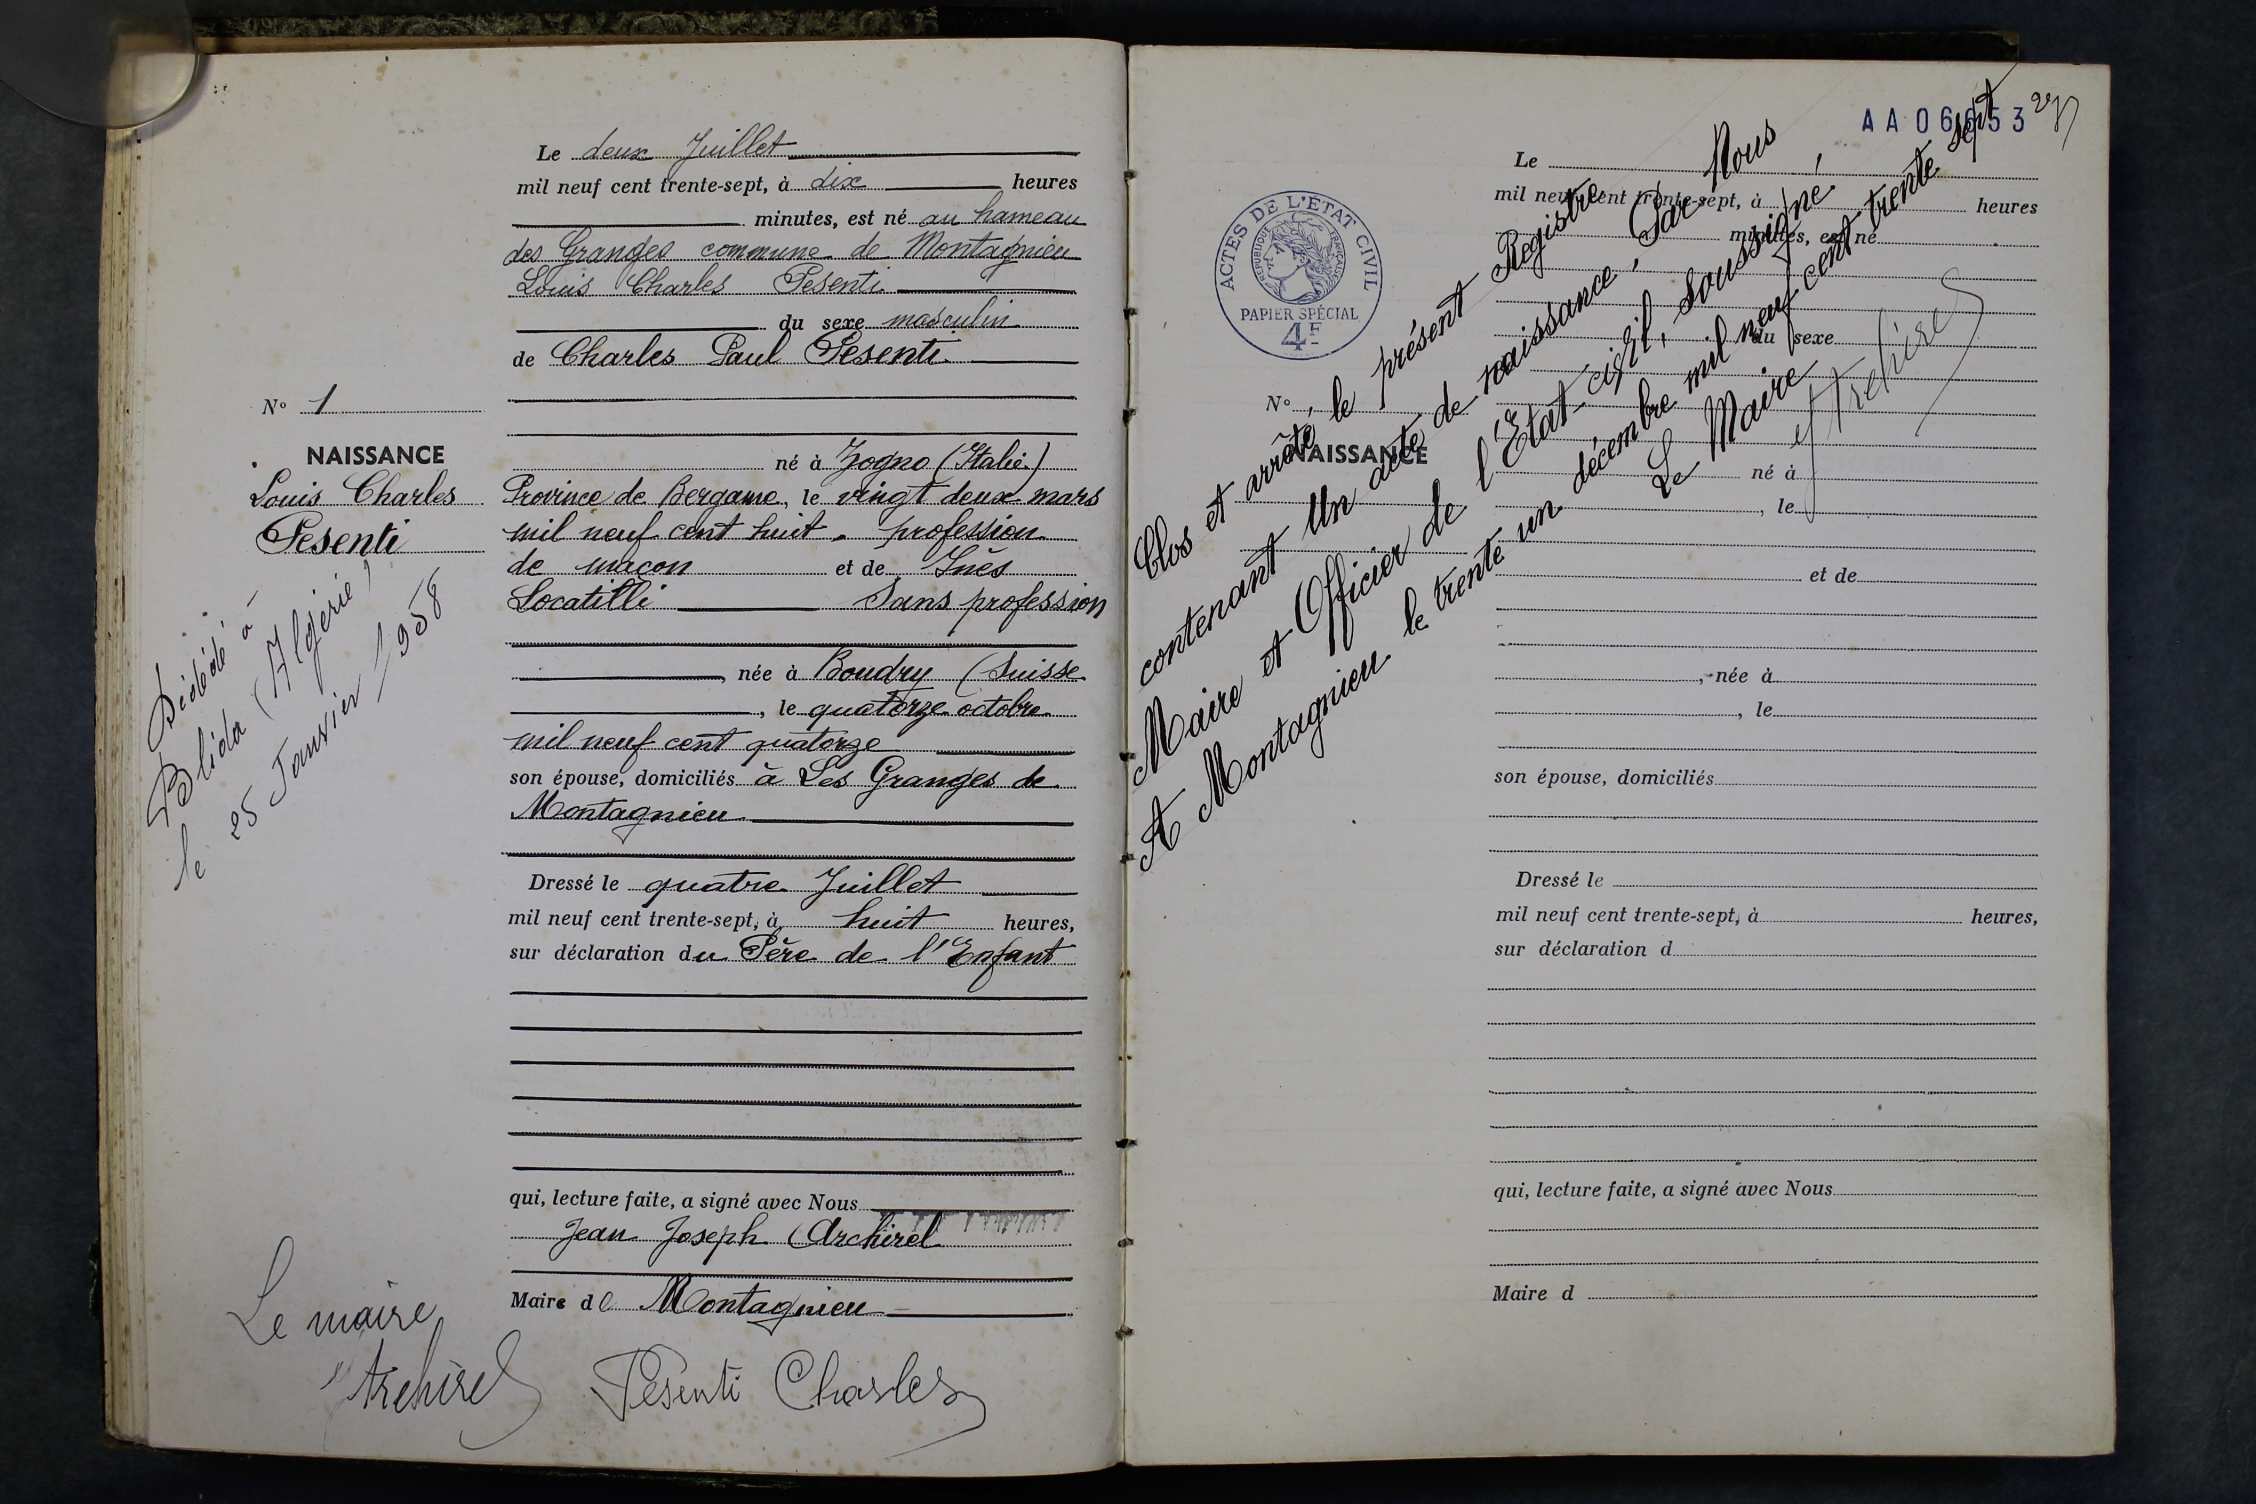 Le deux Juillet
mil neuf cent trente-sept, à dix heures
minutes, est né au hameau
des Granges commune de Montagnieu
Louis Charles Pesenti
du sexe masculin
de Charles Paul Pesenti
N° 1
NAISSANCE
Louis Charles
Pesenti
Décédé à
Blida (Algérie)
le 25 Janvier 1958
né à Zogno (Italie)
Province de Bergame, le vingt deux mars
mil neuf cent huit. profession
de maçon et de Inès
Locatilli Sans profession
, née à Boudry (Suisse
, le quatorze octobre
mil neuf cent quatorze
son épouse, domiciliés à Les Granges de
Montagnieu
Dressé le quatre Juillet
mil neuf cent trente-sept, à huit heures,
sur déclaration du Père de l'Enfant
qui, lecture faite, a signé avec Nous
Jean Joseph Archirel
Maire de Montagnieu
Le maire
Archirel
Pesenti Charles
AA06653
ACTES DE L'ÉTAT CIVIL
RÉPUBLIQUE FRANÇAISE
PAPIER SPÉCIAL
4F
Le
mil neuf cent trente-sept, à heures
minutes, est né
du sexe
N°
NAISSANCE
né à
, le
et de
, née à
, le
son épouse, domiciliés
Dressé le
mil neuf cent trente-sept, à heures,
sur déclaration d
qui, lecture faite, a signé avec Nous
Maire d
Clos et arrêté le présent Registre
contenant Un acte de naissance, Par Nous
Maire et Officier de l'Etat-civil, soussigné,
A Montagnieu le trente un décembre mil neuf cent trente sept
Le Maire
Archirel